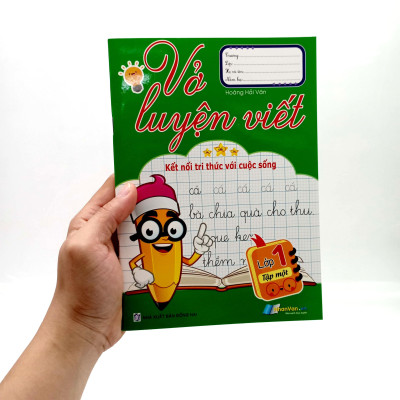 Vở
luyện viết
Trường
Lớp
Họ và tên
Năm học
Hoàng Hải Vân
Kết nối tri thức với cuộc sống
cá cá cá cá cá
bà chia quà cho thu
que kem
thêm
Lớp 1
Tập một